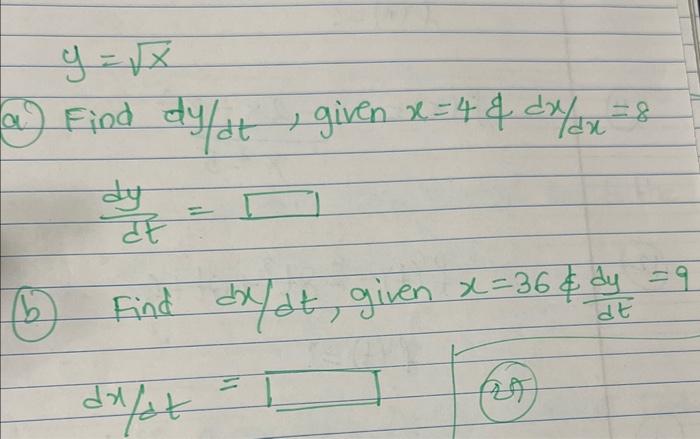 y = √x
(a) Find dy/dt, given x=4 & dx/dx = 8
dy/dt =
(b) Find dx/dt, given x=36 & dy/dt = 9
dx/dt =